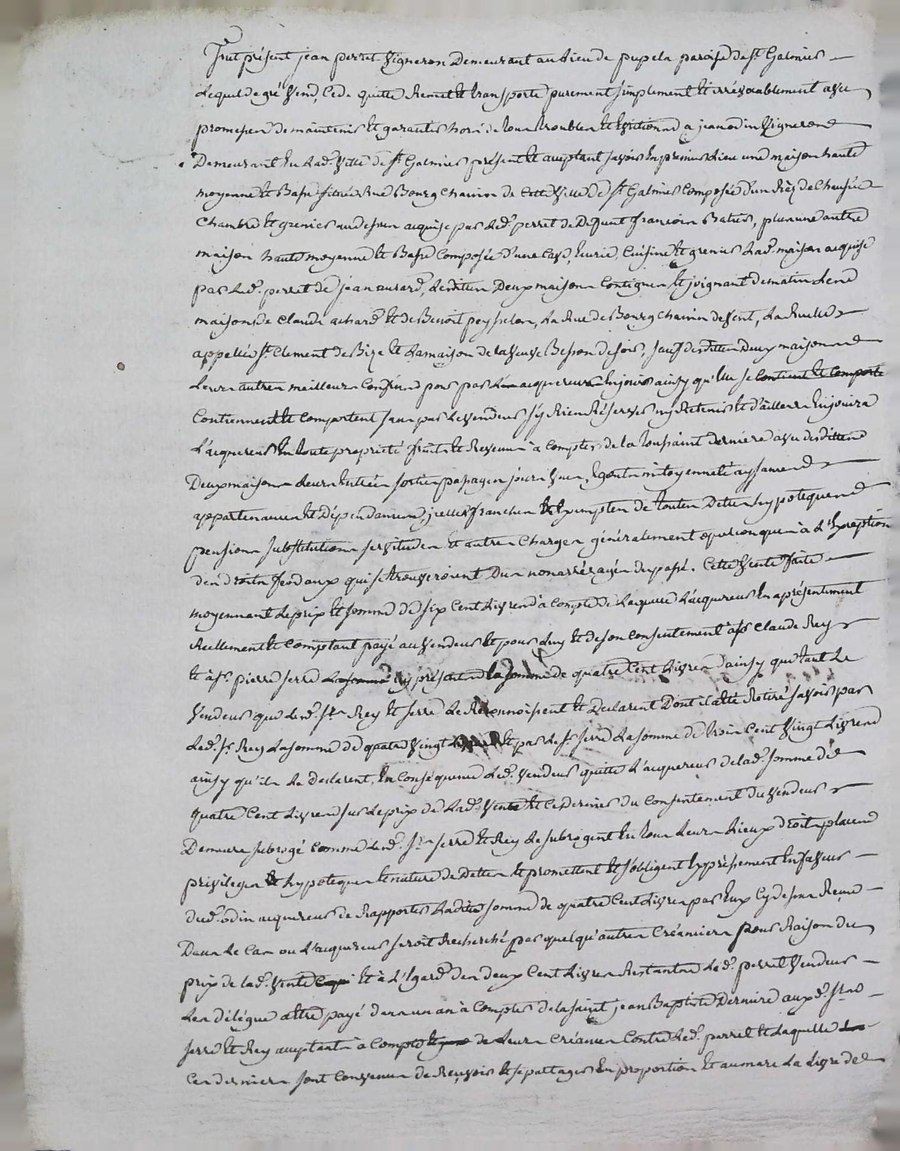 Fut présent jean perret vigneron Demeurant au lieu de pupela paroisse de st Galmier
Lequel de gré vend, Cede quitte Remet et transporte purement simplement et irrévocablement avec
promesse de maintenir et garantir hors de tous troubles et Evictions a jean odin vigneron
Demeurant En Lad. ville de st Galmier présent et acceptant savoir En premier Lieu une maison haute
moyenne et Basse située Rue Bourg chavion de Cette ville de st Galmier Composée d'un Rez de chaussée
chambre et grenier au dessus acquise par Led. perret de Defunt françois Batie, plus une autre
maison haute moyenne et Basse Composée d'une Cave, Ecurie, Cuisine et grenier Lad. maison acquise
par Led. perret de jean Lesdittes Deux maisons Contigues et joignant de matin Les
maisons de Claude achard et de Benoit peysselon, La Rue de Bourg chavion de vent, La Ruelle
appellée st Clement de Bize et La maison de La veuve Besson de soir, sauf desdittes Deux maisons
Leurs autres meilleurs Confins pour par L'acquereur En jouir ainsy qu'Elles se Contient et Comporte
Contiennent et Comportent sans par Le vendeur s'y Rien Réserver ny Retenir et d'ailleurs En jouira
L'acquereur En toute propriété fruits et Revenus à Compter de la toussaint derniere avec desdittes
Deux maisons Leurs Entrées sorties passages jours vues, Egouts mitoyennetés aysances
appartenances et Dépendances, jcelles franches et Exemptes de toutes Dettes hypoteques
pensions substitutions servitudes et autres Charges généralement quelconques à L'Exception
des droits feodaux qui se trouveroient Dus non arréragés du passé. Cette vente faite
moyennant Le prix et somme de six Cent Livres à Compte de Laquelle L'acquereur En a présentement
Reellement et Comptant payé au vendeur et pour Luy et de son Consentement à sr Claude Rey
et à sr pierre serre La somme cy présents la somme de quatre Cent Livres ainsy que tant Le
vendeur que Lesd. srs Rey et serre Le Reconnoissent et Declarent Dont il a été Retiré savoir par
Led. sr Rey La somme de quatre vingt Livres et par Le sr serre La somme de trois Cent vingt Livres
ainsy qu'ils Le Declarent, En Conséquence Led. vendeur quitte L'acquereur de Lad. somme de
quatre Cent Livres sur Le prix de Lad. vente et Ce dernier du Consentement du vendeur
Demeure subrogé comme Lesd. srs serre et Rey Le subrogent En tous Leurs Lieux droits places
privileges et hypoteques et nature de Dettes et promettent et s'obligent Expréssement En faveur
dud. odin acquereur de Rapporter Laditte somme de quatre Cent Livres par Eux Cy dessus Reçue
Dans Le Cas ou L'acquereur seroit Recherché par quelqu'autres Créanciers pour Raison du
prix de lad. vente Et à L'Egard des deux Cent Livres Restantes Led. perret vendeur
Les délégue a être payé dans un an à Compter de la saint jean Baptiste Derniere auxd. srs
serre et Rey acceptants à Compte de Leurs Créances Contre Led. perret et Laquelle
Ces derniers sont Convenus de Reçevoir et se partager En proportion et au marc La Livre de